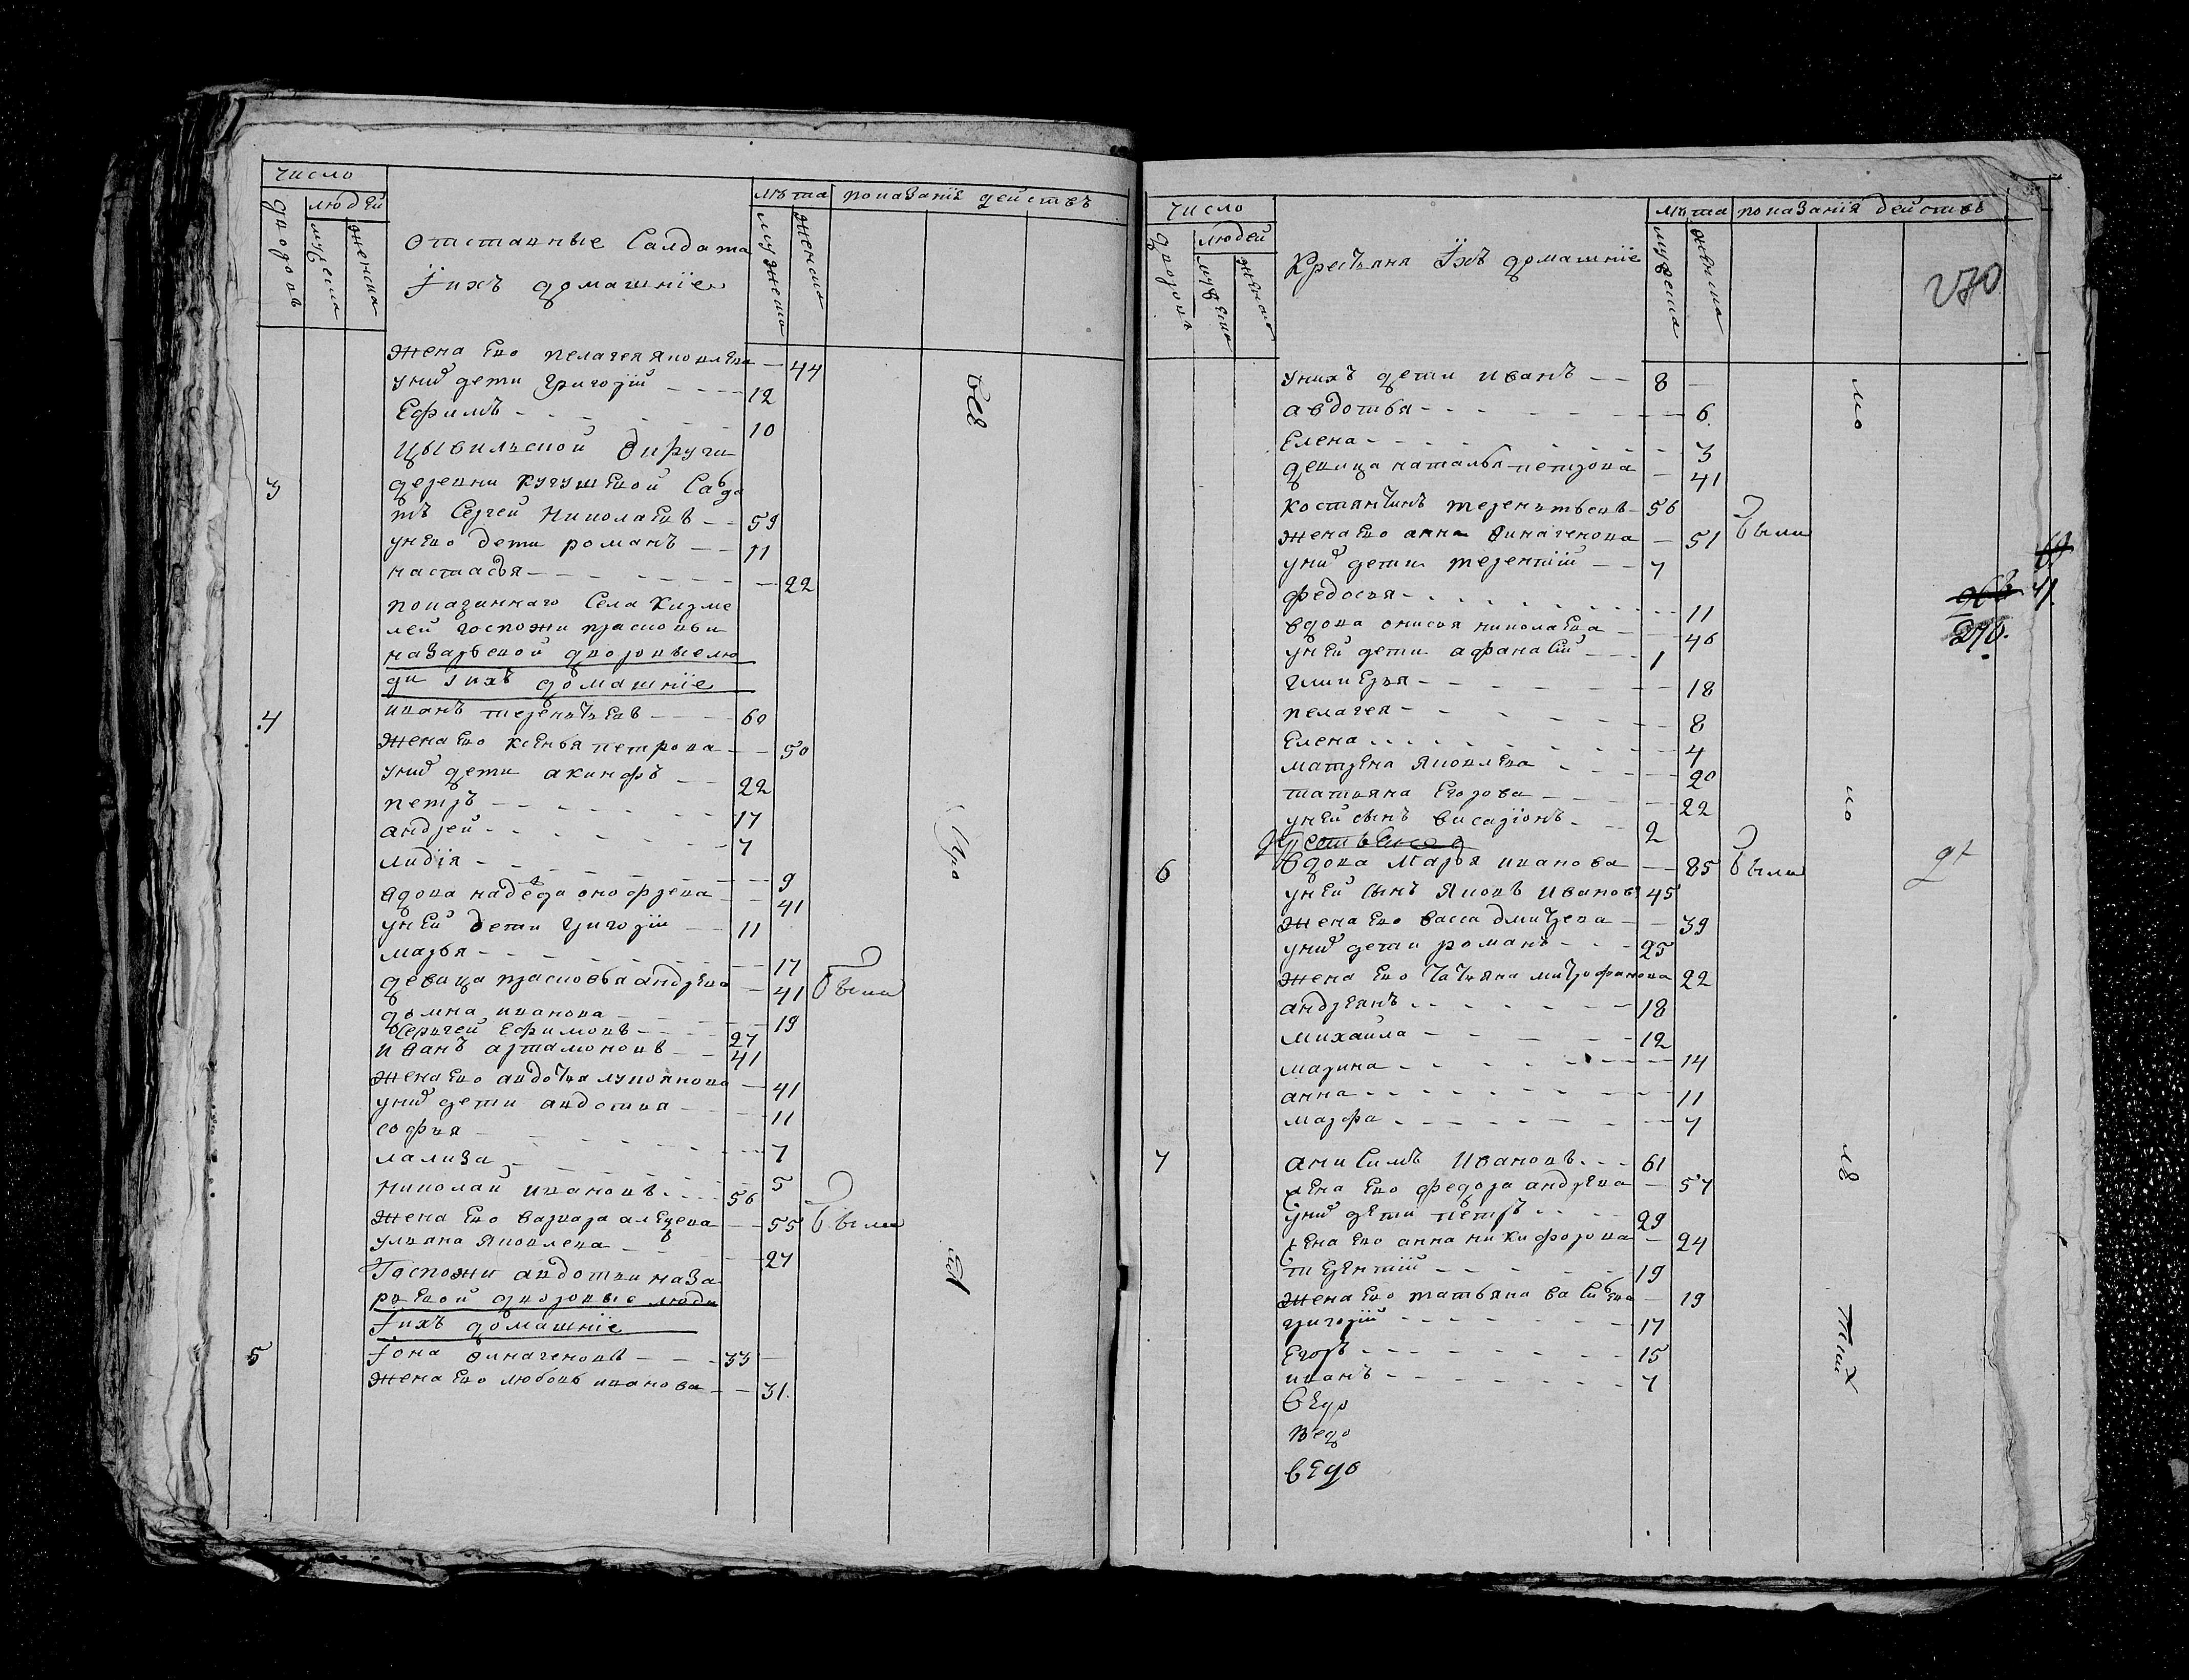 число
людей
дворовъ
мужеска
женска
Отставные Салдата
Iихъ домашнiе
лѣта
мужеска
женска
показанiе действъ
жена Ево пелагея яковлева — 44
унихъ дети григорiй 12
Ефимъ 10
Цывильской округи
3 деревни кугушевой Салда
тъ Сергей Николаевъ 59
унево дети романъ 11
настасья 22
показаннаго Села
лей госпожи прасковьи
назарьевой дворовые лю
ди Iихъ домашнiе
4 иванъ терентьевъ 60
жена Ево ксенья петрова 50
унихъ дети акинфъ 22
петръ 17
андрей 7
лидiя 9
вдова надежда онофрева 41
уней дети григорiй 11
марья 17
девица прасковья андрева 41 были
домна иванова 19
Сергей Ефимовъ 27
иванъ артамоновъ 41
жена Ево авдотья лукоянова 41
унихъ дети авдотья 11
софья 7
5
николай ивановъ 56
жена Ево варвара алекцева 55 были
ульяна яковлева 27
Госпожи авдотьи наза
рьевой дворовые люди
Iихъ домашнiе
5 Iона 33
жена Ево любовь иванова 31
все
число
людей
дворовъ
мужеска
женска
Крестьяня Iихъ домашнiе
лѣта
мужеска
женска
показанiя действъ
270
унихъ дети иванъ 8
авдотья 6
Елена 3
девица наталья петрова 41
костянтинъ терентьевъ 56
жена Ево анна 51 были
унихъ дети терентiй 7
федосья 11
вдова онисья николаева 46
уней дети афанасiй 1
гликерья 18
пелагея 8
Елена 4
матрена яковлева 20
татьяна Егорова 22
уней сынъ висарiонъ 2
6 вдова марья иванова 85 были
уней сынъ яковъ ивановъ 45
жена Ево васса дмитрева 39
унихъ дети романъ 25
жена Ево татьяна митрофанова 22
андреянъ 18
михайла 12
марина 14
анна 11
марфа 7
7 анисимъ ивановъ 61
жена Ево федора андрева 57
унихъ дети петръ 29
жена Ево анна никифорова 24
терентiй 19
жена Ево татьяна васильева 19
григорiй 17
Егоръ 15
иванъ 7
270.